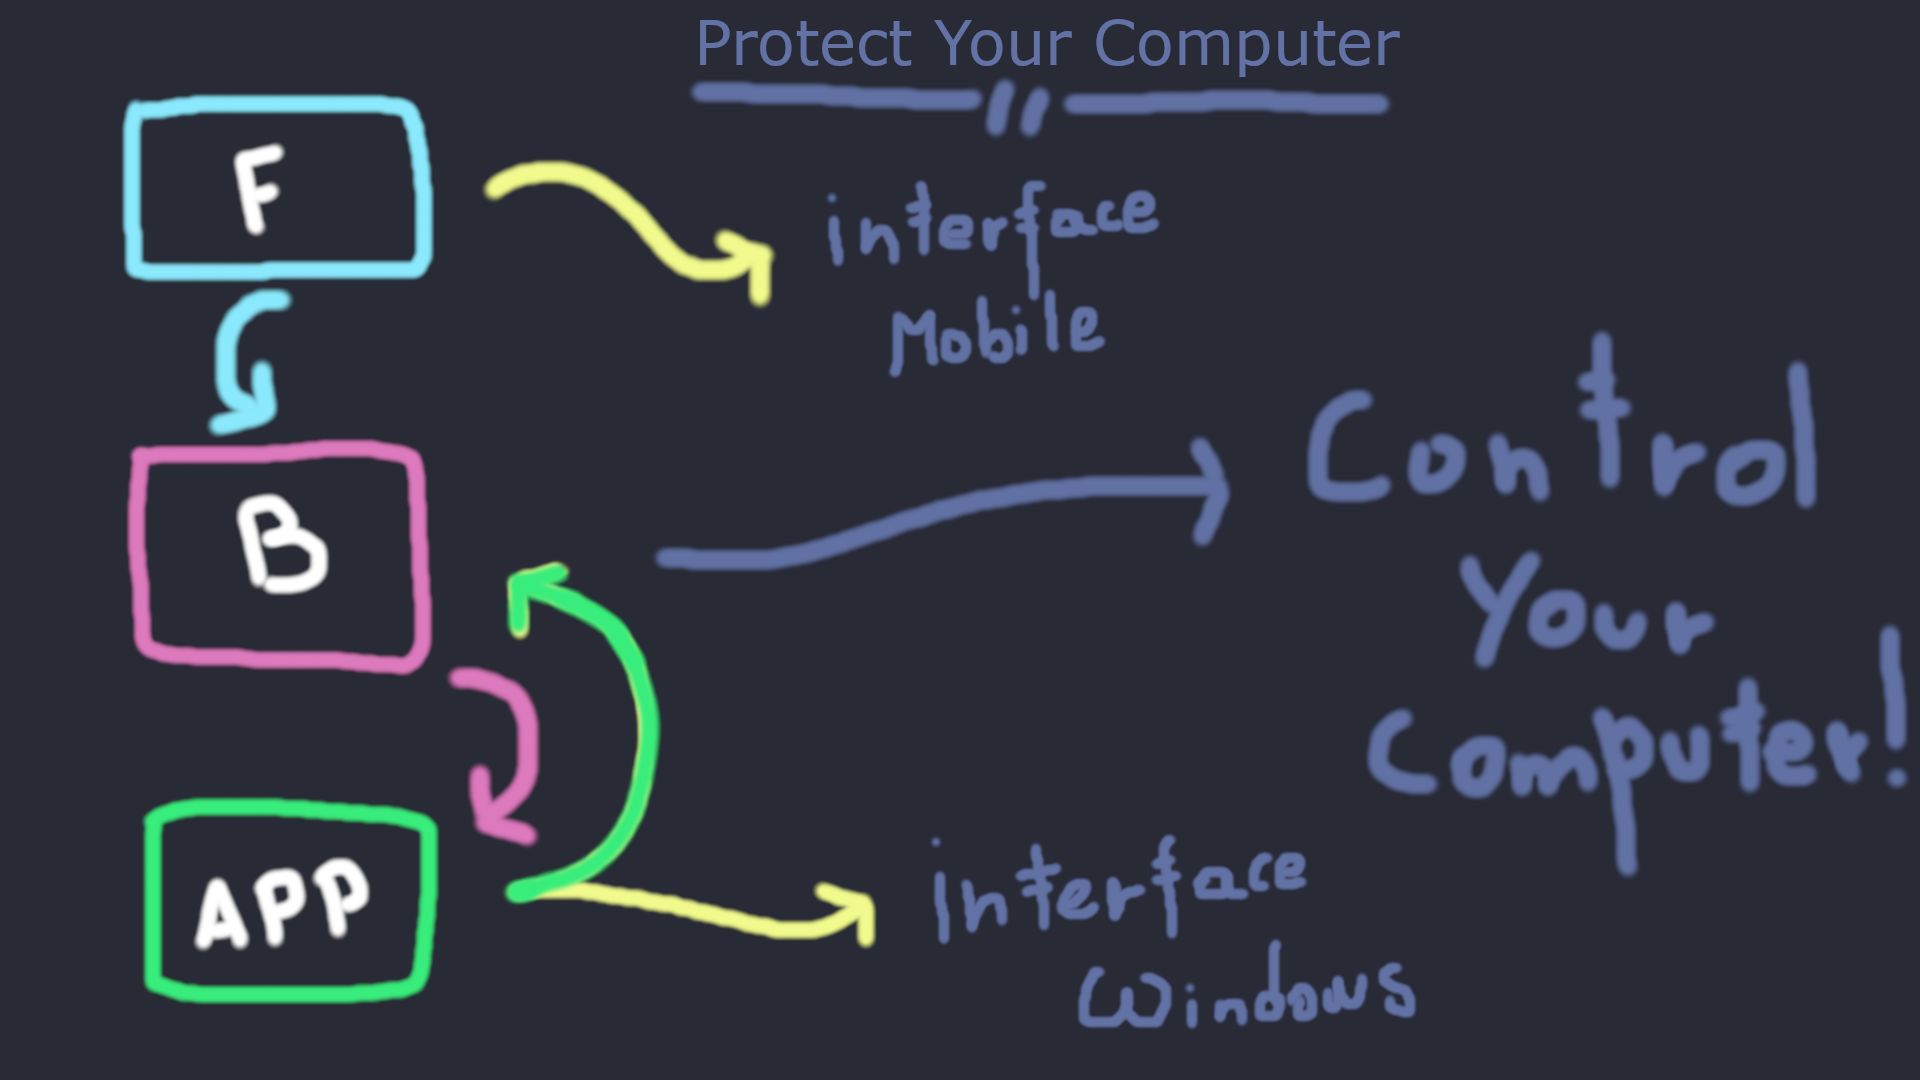 Protect Your Computer
F
interface
Mobile
B
Control
Your
Computer!
APP
interface
Windows